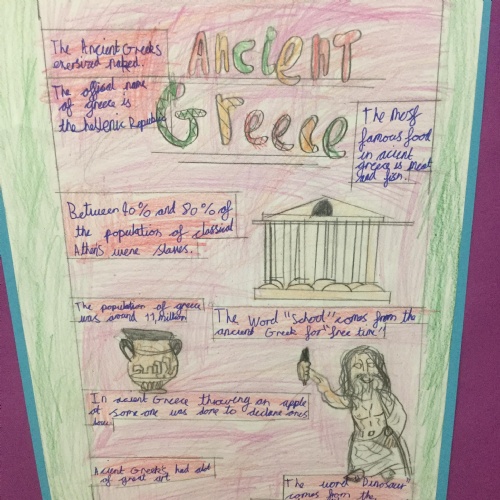 The Ancient Greeks
exersized naked.
ANCiENT
Greece
The offical name
of greece is
the hellenic Republic
The most
famous food
in acient
greece is meat
and fish.
Between 40% and 80% of
the population of classical
Athens were slaves.
The population of greece
was around 11,million
The word "School" comes from the
ancient Greek for "free time"
In acient Greece throwing an apple
at someone was done to declare ones
love
Acient Greeks had alot
of great art
The word "Dinosaur"
comes from the